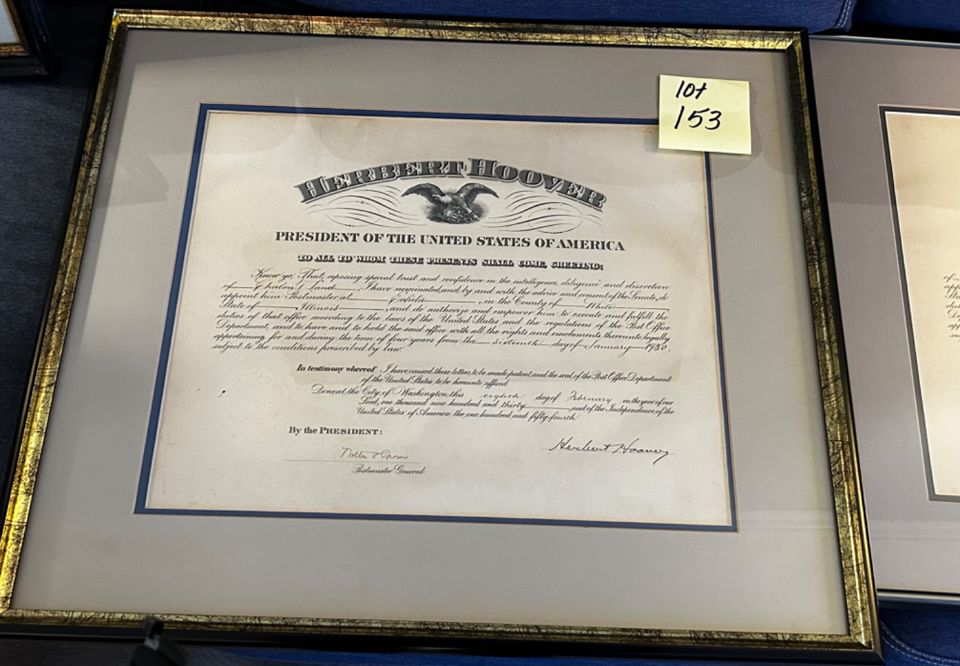 lot
153
HERBERT HOOVER
PRESIDENT OF THE UNITED STATES OF AMERICA
TO ALL TO WHOM THESE PRESENTS SHALL COME, GREETING:
Know ye, That, reposing special trust and confidence in the intelligence, diligence and discretion
of Land, I have nominated, and, by and with the advice and consent of the Senate, do
appoint him Postmaster at Enfield, in the County of White
State of Illinois, and do authorize and empower him to execute and fulfill the
duties of that office according to the laws of the United States and the regulations of the Post Office
Department, and to have and to hold the said office with all the rights and emoluments thereunto legally
appertaining for and during the term of four years from the sixteenth day of January 1930,
subject to the conditions prescribed by law.
In testimony whereof I have caused these letters to be made patent and the seal of the Post Office Department
of the United States to be hereunto affixed.
Done at the City of Washington this eighth day of February in the year of our
Lord, one thousand nine hundred and thirty and of the Independence of the
United States of America the one hundred and fifty-fourth.
By the PRESIDENT:
Herbert Hoover
Postmaster General